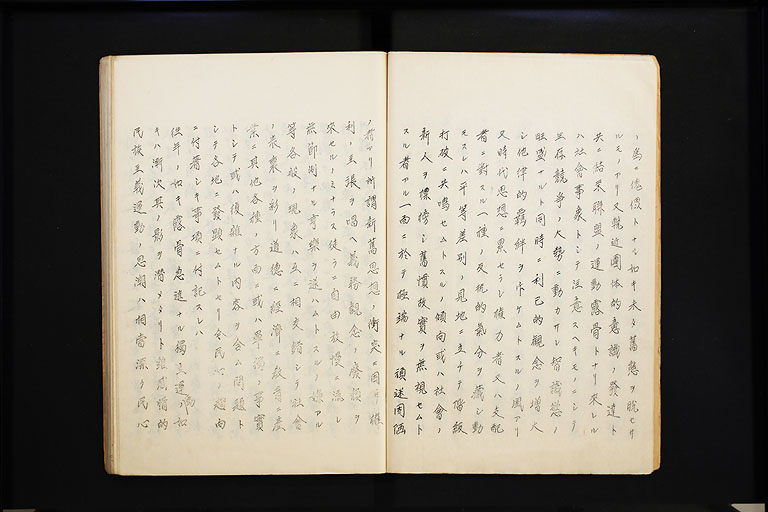 ノ為ニ傀儡トナル如キ未タ舊態ヲ脱セサ
ルモノアリ又輓近團体的意識ノ發達ト
共ニ結束聯盟ノ運動露骨トナリ来レル
ハ社會事象トシテ注意スヘキモノニシテ
生存競争ノ大勢ニ動カサレ智識慾ノ
旺盛ナルト同時ニ利己的觀念ヲ増大
シ他律的羈絆ヲ避ケムトスルノ風アリ
又時代思想ニ累セラレ権力者又ハ支配
者ニ對スル一種ノ反抗的氣分ヲ蔵シ動
モスレハ平等差別ノ見地ニ立チテ階級
打破ニ共鳴セムトスルノ傾向或ハ社會ノ
新人ヲ標榜シ舊慣故實ヲ無視セムト
スル者アル一面ニ於テ極端ナル頑迷固陋
ノ者アリ所謂新舊思想ノ衝突ニ因リ権
利ノ主張ヲ唱ヘ義務觀念ノ廢頽ヲ
来セルノミナラス徒ラニ自由放慢ニ流レ
無節制ナル享樂ヲ遂ハムトスル嫌アル
等各般ノ現象ハ互ニ相交錯シテ社會
ノ表裏ヲ彩リ道德ニ經濟ニ教育ニ産
業ニ其他各種ノ方面ニ或ハ單獨ノ事實
トシテ或ハ複雑ナル内容ヲ含ム問題ト
シテ各地ニ發現セムトセリ今民心ノ趨向
ニ付著シキ事項ニ付記スレハ
往年ノ如キ露骨急進ナル獨立運動ノ如
キハ漸次其ノ影ヲ潜メタリト雖感情的
民族主義運動ノ思潮ハ相當深ク民心